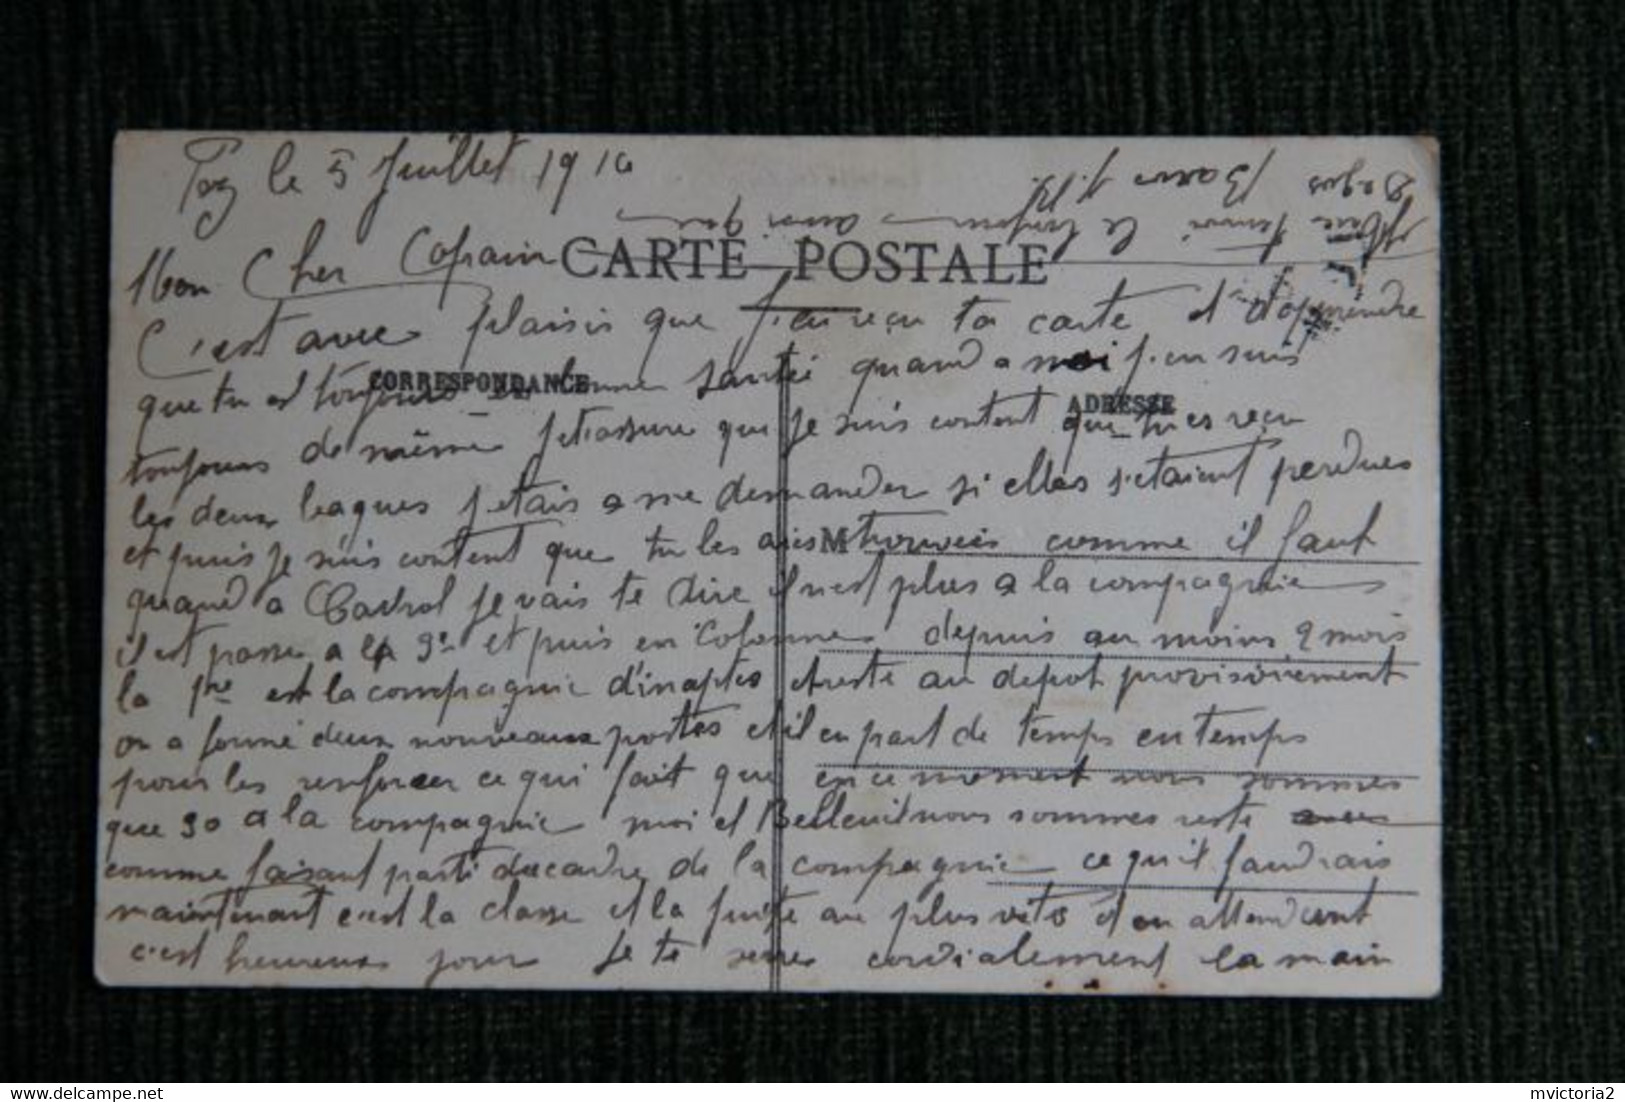 le 5 Juillet 1916
Mon Cher Copain
CARTE POSTALE
C'est avec plaisir que j'ai reçu ta carte et d'apprendre
que tu es toujours en bonne santé quand a moi j'en suis
CORRESPONDANCE
ADRESSE
toujours de même je t'assure que je suis content que tu es reçu
les deux bagues j'etais a me demander si elles s'etaient perdues
et puis je suis content que tu les aies trouvées comme il faut
M
quand a je vais te dire il n'est plus a la compagnie
il est passe a la 9e et puis en Colonne depuis au moins 2 mois
la 1re est la compagnie d'inaptes et reste au depot provisoirement
on a formé deux nouveaux postes et il en part de temps en temps
pour les renforcer ce qui fait que en ce moment nous sommes
que 30 a la compagnie moi et nous sommes reste
comme faisant parti du cadre de la compagnie ce qu'il faudrais
maintenant c'est la classe et la fuite au plus vite et en attendant
c'est heureux jour Je te serre cordialement la main
mvictoria2